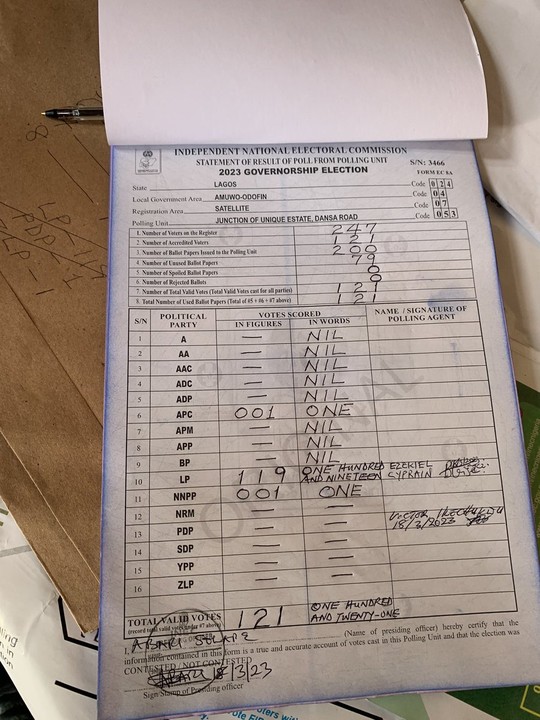 INDEPENDENT NATIONAL ELECTORAL COMMISSION
STATEMENT OF RESULT OF POLL FROM POLLING UNIT S/N: 3466
2023 GOVERNORSHIP ELECTION FORM EC 8A
State LAGOS Code 0 2 4
Local Government Area AMUWO-ODOFIN Code 0 4
Registration Area SATELLITE Code 0 7
Polling Unit JUNCTION OF UNIQUE ESTATE, DANSA ROAD Code 0 5 3
1. Number of Voters on the Register 247
2. Number of Accredited Voters 121
3. Number of Ballot Papers Issued to the Polling Unit 200
4. Number of Unused Ballot Papers 79
5. Number of Spoiled Ballot Papers 0
6. Number of Rejected Ballots 0
7. Number of Total Valid Votes (Total Valid Votes cast for all parties) 121
8. Total Number of Used Ballot Papers (Total of #5 + #6 + #7 above) 121
S/N POLITICAL PARTY VOTES SCORED NAME / SIGNATURE OF POLLING AGENT
IN FIGURES IN WORDS
1 A — NIL
2 AA — NIL
3 AAC — NIL
4 ADC — NIL
5 ADP — NIL
6 APC 001 ONE
7 APM — NIL
8 APP — NIL
9 BP — NIL
10 LP 119 ONE HUNDRED AND NINETEEN EZEKIEL CYPRAIN
11 NNPP 001 ONE
12 NRM — —
13 PDP — — VICTOR 18/3/2023
14 SDP — —
15 YPP — —
16 ZLP — —
TOTAL VALID VOTES 121 ONE HUNDRED AND TWENTY-ONE
(record total valid votes under #7 above)
I, (Name of presiding officer) hereby certify that the
information contained in this form is a true and accurate account of votes cast in this Polling Unit and that the election was
CONTESTED / NOT CONTESTED
18/3/23
Sign/Stamp of Presiding officer